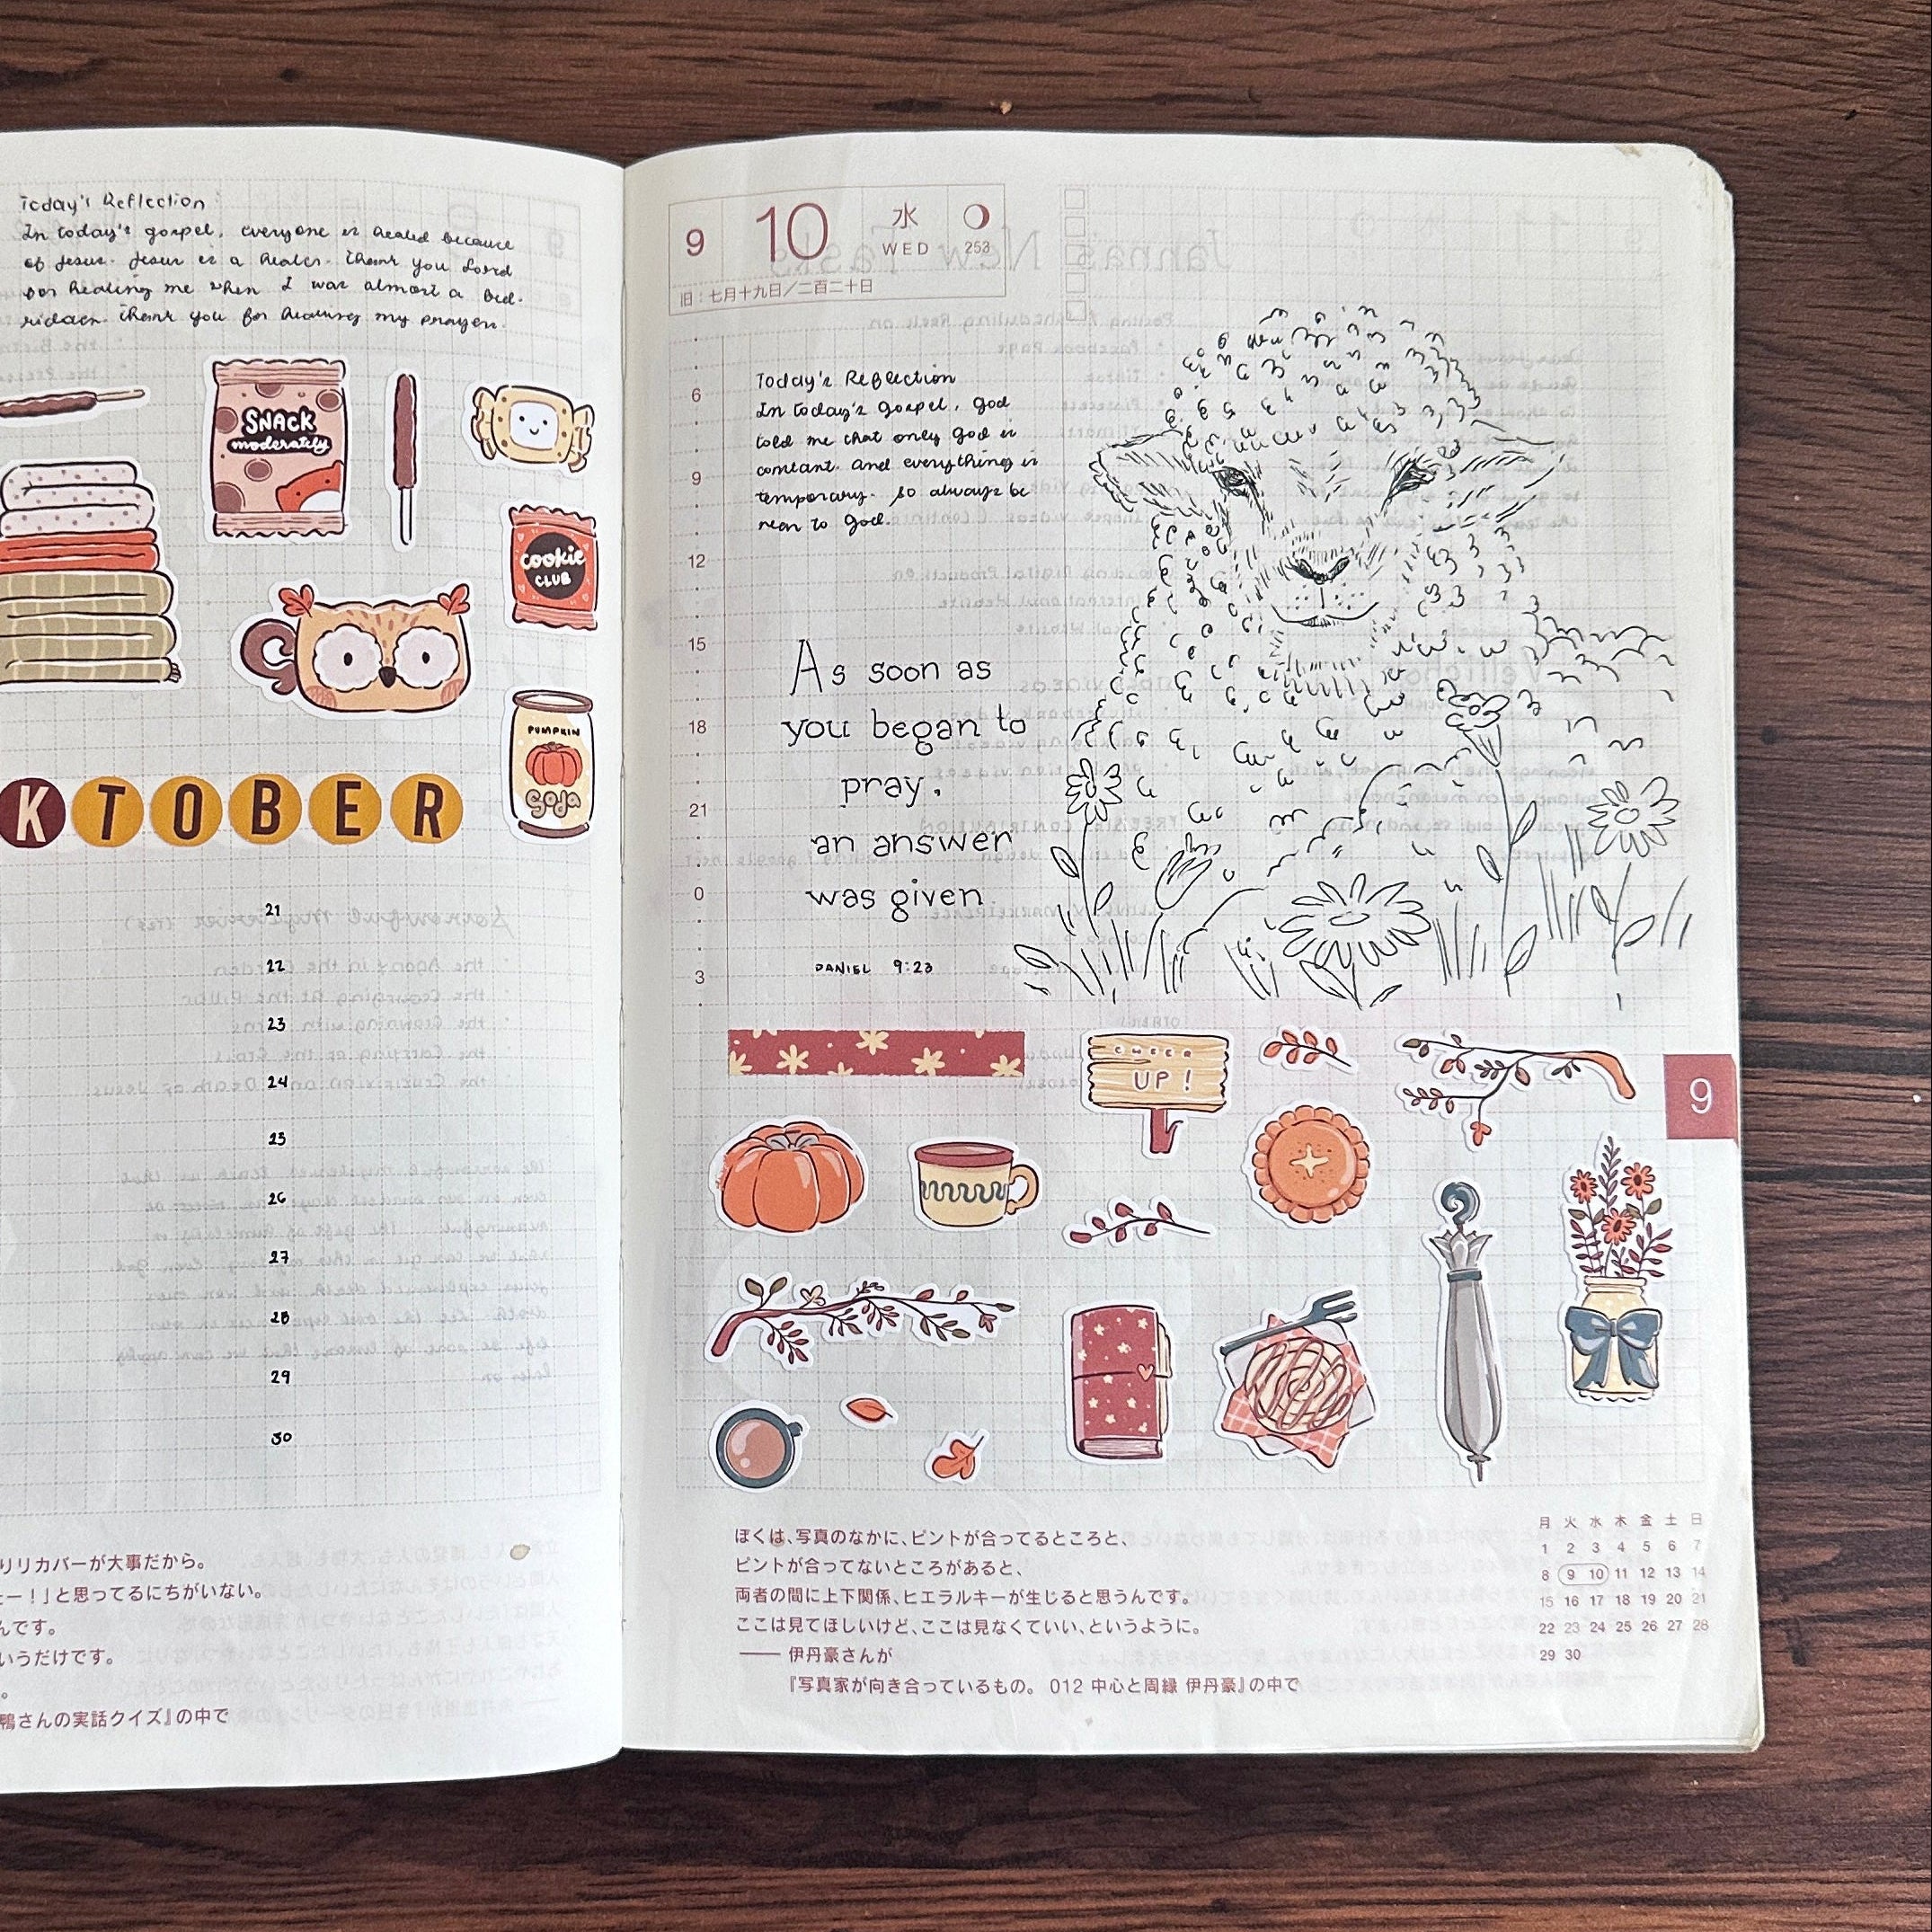 Today's Reflection
In today's gospel, everyone is healed because
of Jesus. Jesus is a healer. Thank you Lord
for healing me when I was almost a bed-
ridden. Thank you for hearing my prayer.
SNACK
moderately
cookie
CLUB
PUMPKIN
SODA
KTOBER
21
22
23
24
25
26
27
28
29
30
りリカバーが大事だから。
ー！」と思ってるにちがいない。
んです。
いうだけです。
。
鴨さんの実話クイズ』の中で
9 10 水
WED 253
旧：七月十九日／二百二十日
6
9
12
15
18
21
0
3
Today's Reflection
In today's gospel, God
told me that only God is
constant. And everything is
temporary. So always be
near to God.
As soon as
you began to
pray,
an answer
was given
DANIEL 9:23
CHEER
UP!
9
ぼくは、写真のなかに、ピントが合ってるところと、
ピントが合ってないところがあると、
両者の間に上下関係、ヒエラルキーが生じると思うんです。
ここは見てほしいけど、ここは見なくていい、というように。
—— 伊丹豪さんが
『写真家が向き合っているもの。 012 中心と周縁 伊丹豪』の中で
月 火 水 木 金 土 日
1 2 3 4 5 6 7
8 9 10 11 12 13 14
15 16 17 18 19 20 21
22 23 24 25 26 27 28
29 30